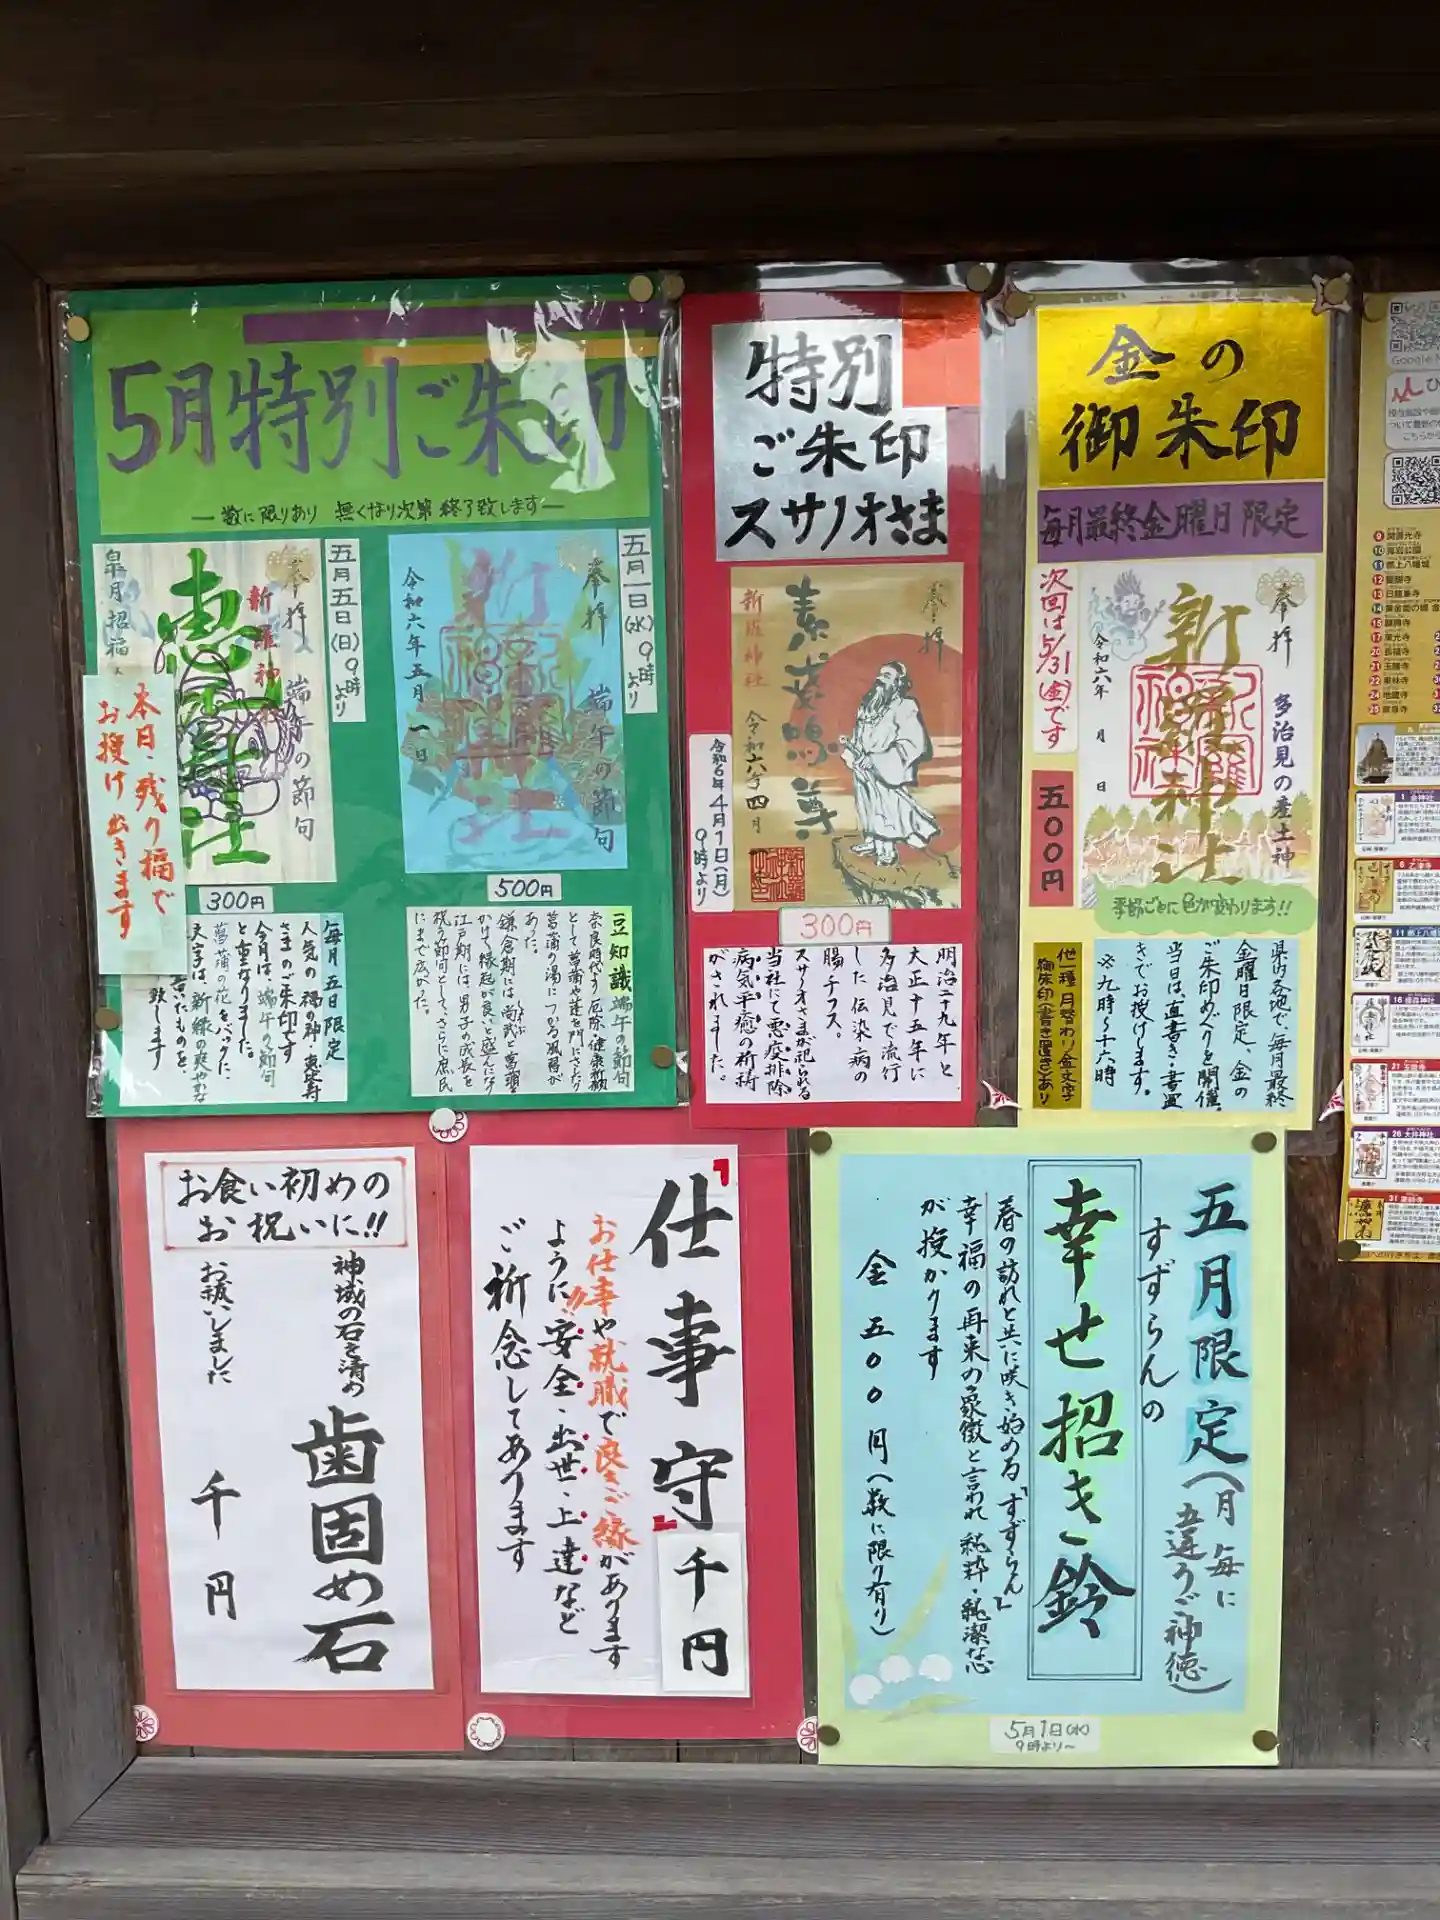 5月特別ご朱印
―数に限りあり 無くなり次第終了致します―
五月一日(水)9時より
奉拝
端午の節句
新羅神社
令和六年五月一日
500円
豆知識 端午の節句
奈良時代より厄除、健康祈願
として菖蒲や蓬を門にさしたり
菖蒲の湯につかる風習が
あった。
鎌倉期には尚武と菖蒲
かけて縁起が良いと盛んになり
江戸期には、男子の成長を
祝う節句として、さらに庶民
にまで広がった。
五月五日(日)9時より
奉拝
端午の節句
新羅神社
恵比寿社
皐月招福
300円
本日、残り福で
お授け出きます
毎月五日限定
人気の福の神・恵比寿
さまのご朱印です
今月は、端午の節句
と重なりました。
菖蒲の花をバックに、
文字は、新緑の爽やかな
書いたものを、
致します
特別
ご朱印
スサノオさま
奉拝
素戔嗚尊
新羅神社
令和六年四月
令和6年4月1日(月)
9時より
300円
明治二九年と
大正十五年に
多治見で流行
した伝染病の
腸チフス。
スサノオさまが祀られる
当社にて悪疫排除
病気平癒の祈祷
がされました。
金の
御朱印
毎月最終金曜日限定
次回は5/31(金)です
五〇〇円
奉拝
多治見の産土神
新羅神社
令和六年 月 日
季節ごとに色が変わります!!
県内各地で、毎月最終
金曜日限定、金の
ご朱印めぐりを開催。
当日は、直書き・書置
きでお授けします。
※九時〜十六時
他一種 月替わり金文字
御朱印(書き置き)あり
お食い初めの
お祝いに!!
神域の石を清め
お祓いしました
歯固め石
千円
「仕事守」
千円
お仕事や就職で良きご縁があります
ように、安全・出世・上達など
ご祈念してあります
五月限定(月毎に
違うご神徳)
すずらんの
幸せ招き鈴
春の訪れと共に咲き始める「すずらん」
幸福の再来の象徴と言われ純粋・純潔な心
が授かります
金 五〇〇円(数に限り有り)
5月1日(水)
9時より〜
9 開源光寺
11 郡上八幡城
13 日龍峯寺
1 金神社
6 乙津寺
11 郡上八幡城
21 玉龍寺
26 大井神社